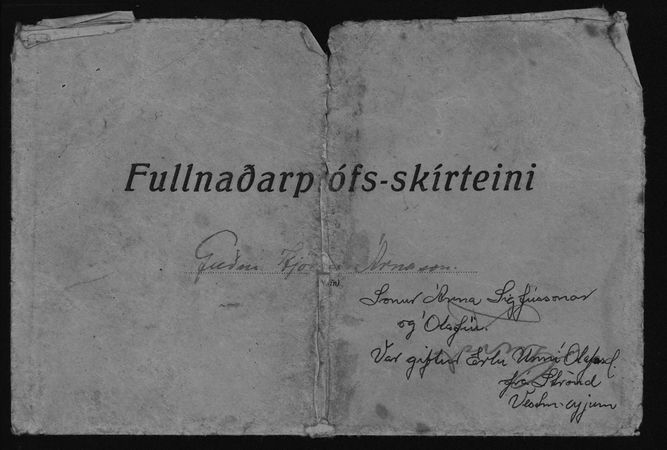 Fullnaðarprófs-skírteini
Guðni Hjörtur Árnason.
Sonur Árna Sigfússonar
og Ólafíu.
Var giftur Erlu Unni Ólafsd.
frá Strönd
Vestm.eyjum